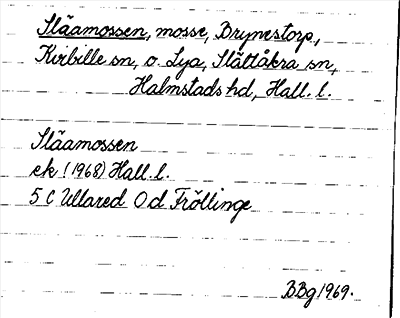 Slåamossen, mosse, Brynestorp,
Kvibille sn, o. Lya, Slättåkra sn,
Halmstads hd, Hall. l.
Slåamossen
ek (1968) Hall. l.
5 C Ullared 0 d Fröllinge
BBg 1969.